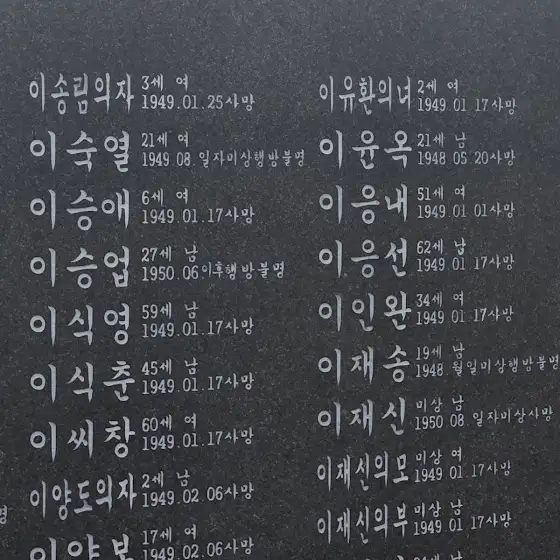 이송림의자 3세 여
1949.01.25사망
이숙열 21세 여
1949.08.일자미상행방불명
이승애 6세 여
1949.01.17사망
이승업 27세 남
1950.06이후행방불명
이식영 59세 남
1949.01.17사망
이식춘 45세 남
1949.01.17사망
이씨창 60세 여
1949.01.17사망
이양도의자 2세 남
1949.02.06사망
17세 여
1949.02.06사망
이유환의녀 2세 여
1949.01.17사망
이윤옥 21세 남
1948.05.20사망
이응내 51세 여
1949.01.01사망
이응선 62세 남
1949.01.17사망
이인완 34세 여
1949.01.17사망
이재송 19세 남
1948.월일미상행방불명
이재신 미상 남
1950.08.일자미상사망
이재신의모 미상 여
1949.01.17사망
이재신의부 미상 남
1949.01.17사망